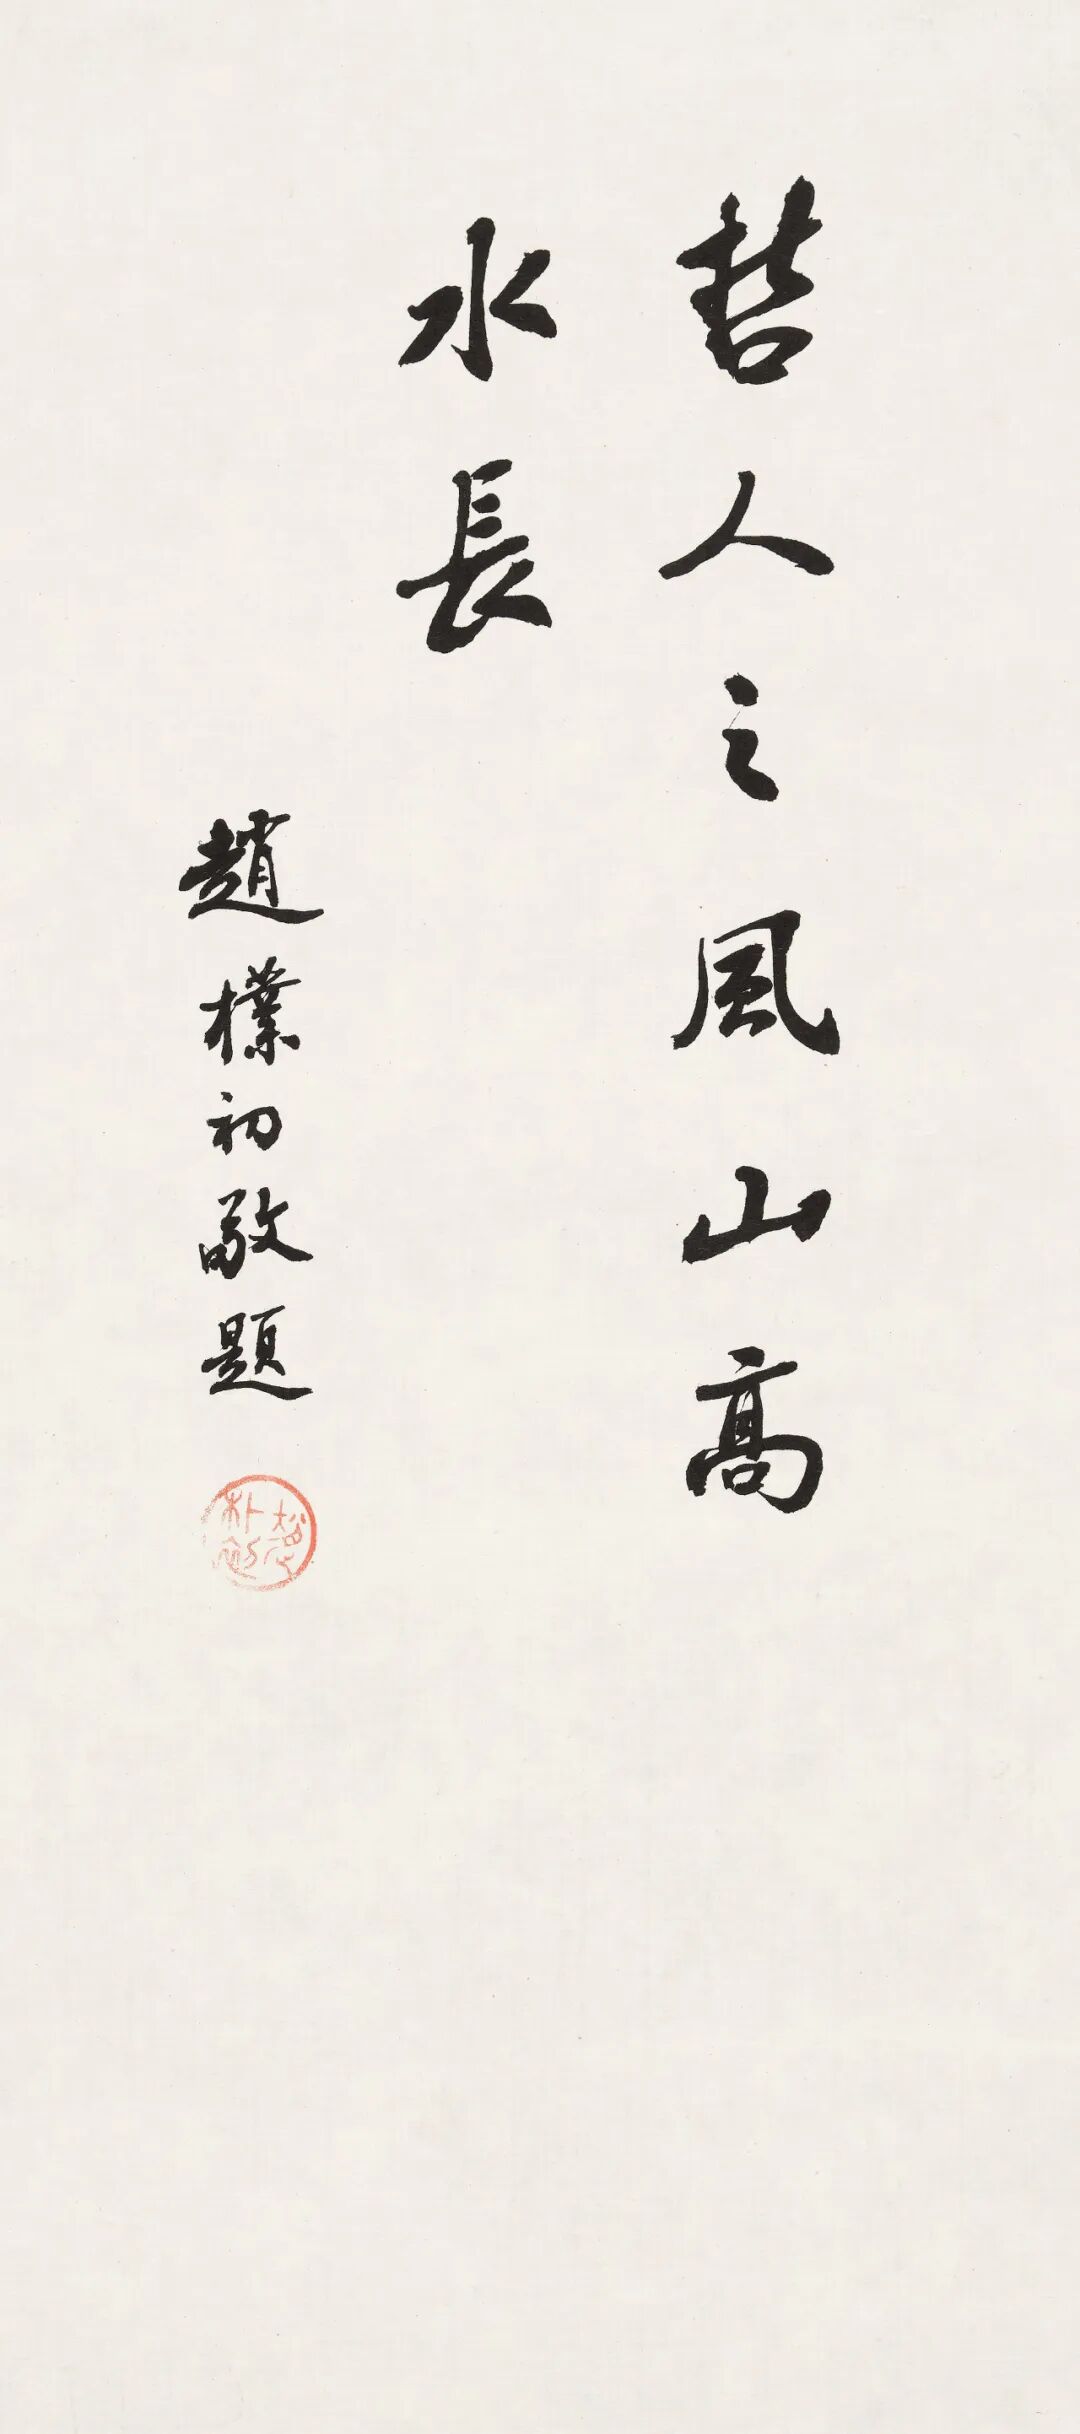 哲人之風山高
水長
趙樸初敬題